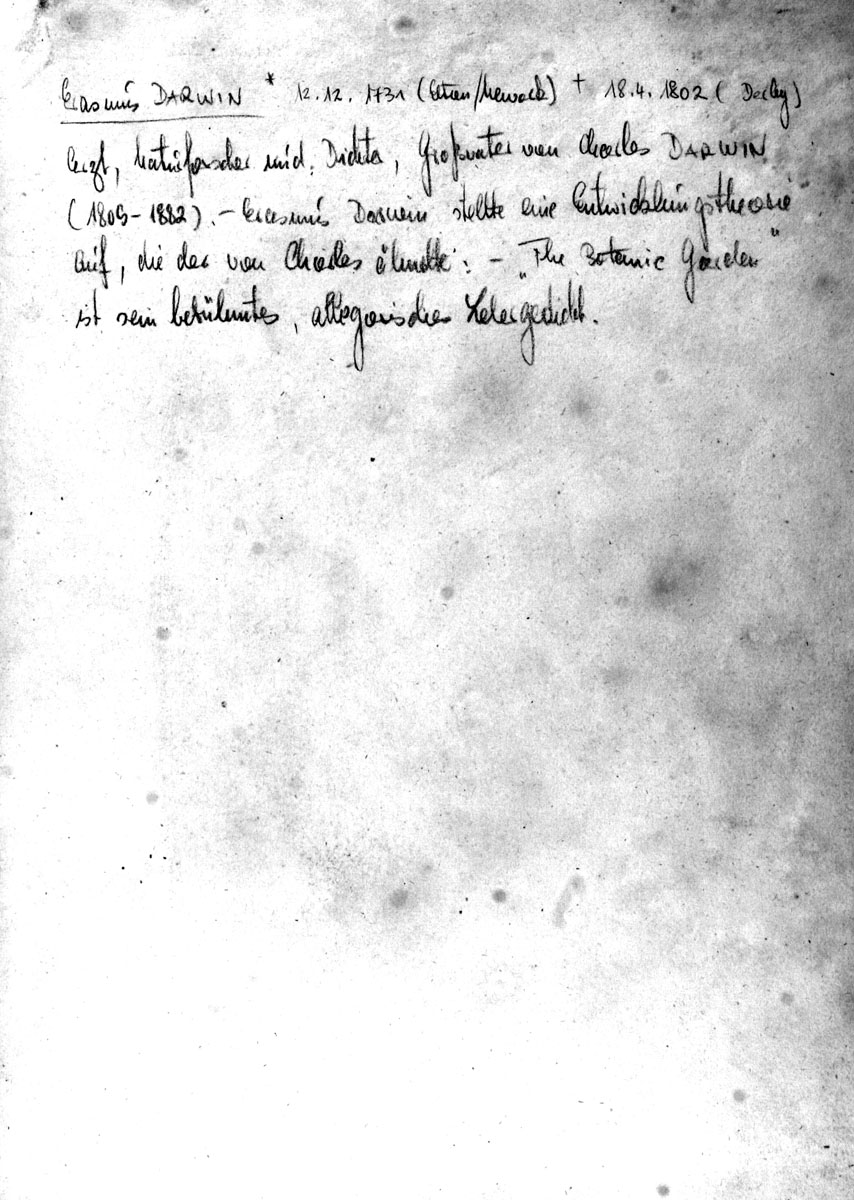 Erasmus DARWIN * 12.12.1731 (Elton/Newark) † 18.4.1802 (Derby)
Arzt, Naturforscher und Dichter, Großvater von Charles DARWIN
(1809-1882). – Erasmus Darwin stellte eine Entwicklungstheorie
auf, die der von Charles ähnelte. – „The Botanic Garden"
ist sein berühmtes, allegorisches Lehrgedicht.